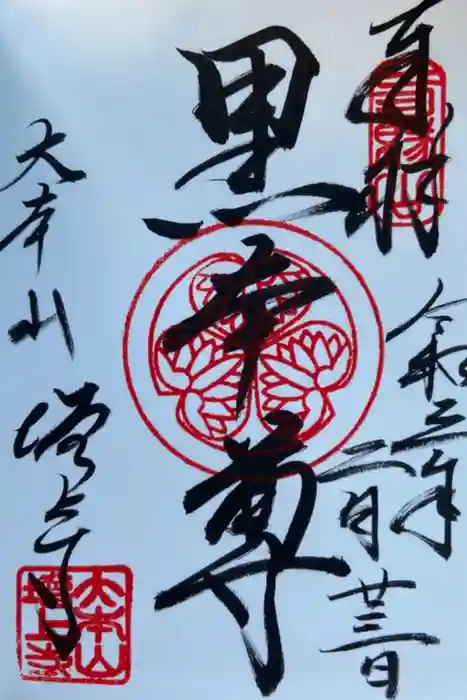 奉拝
令和三年
二月廿三日
黒本尊
大本山
増上寺
大本山
増上寺